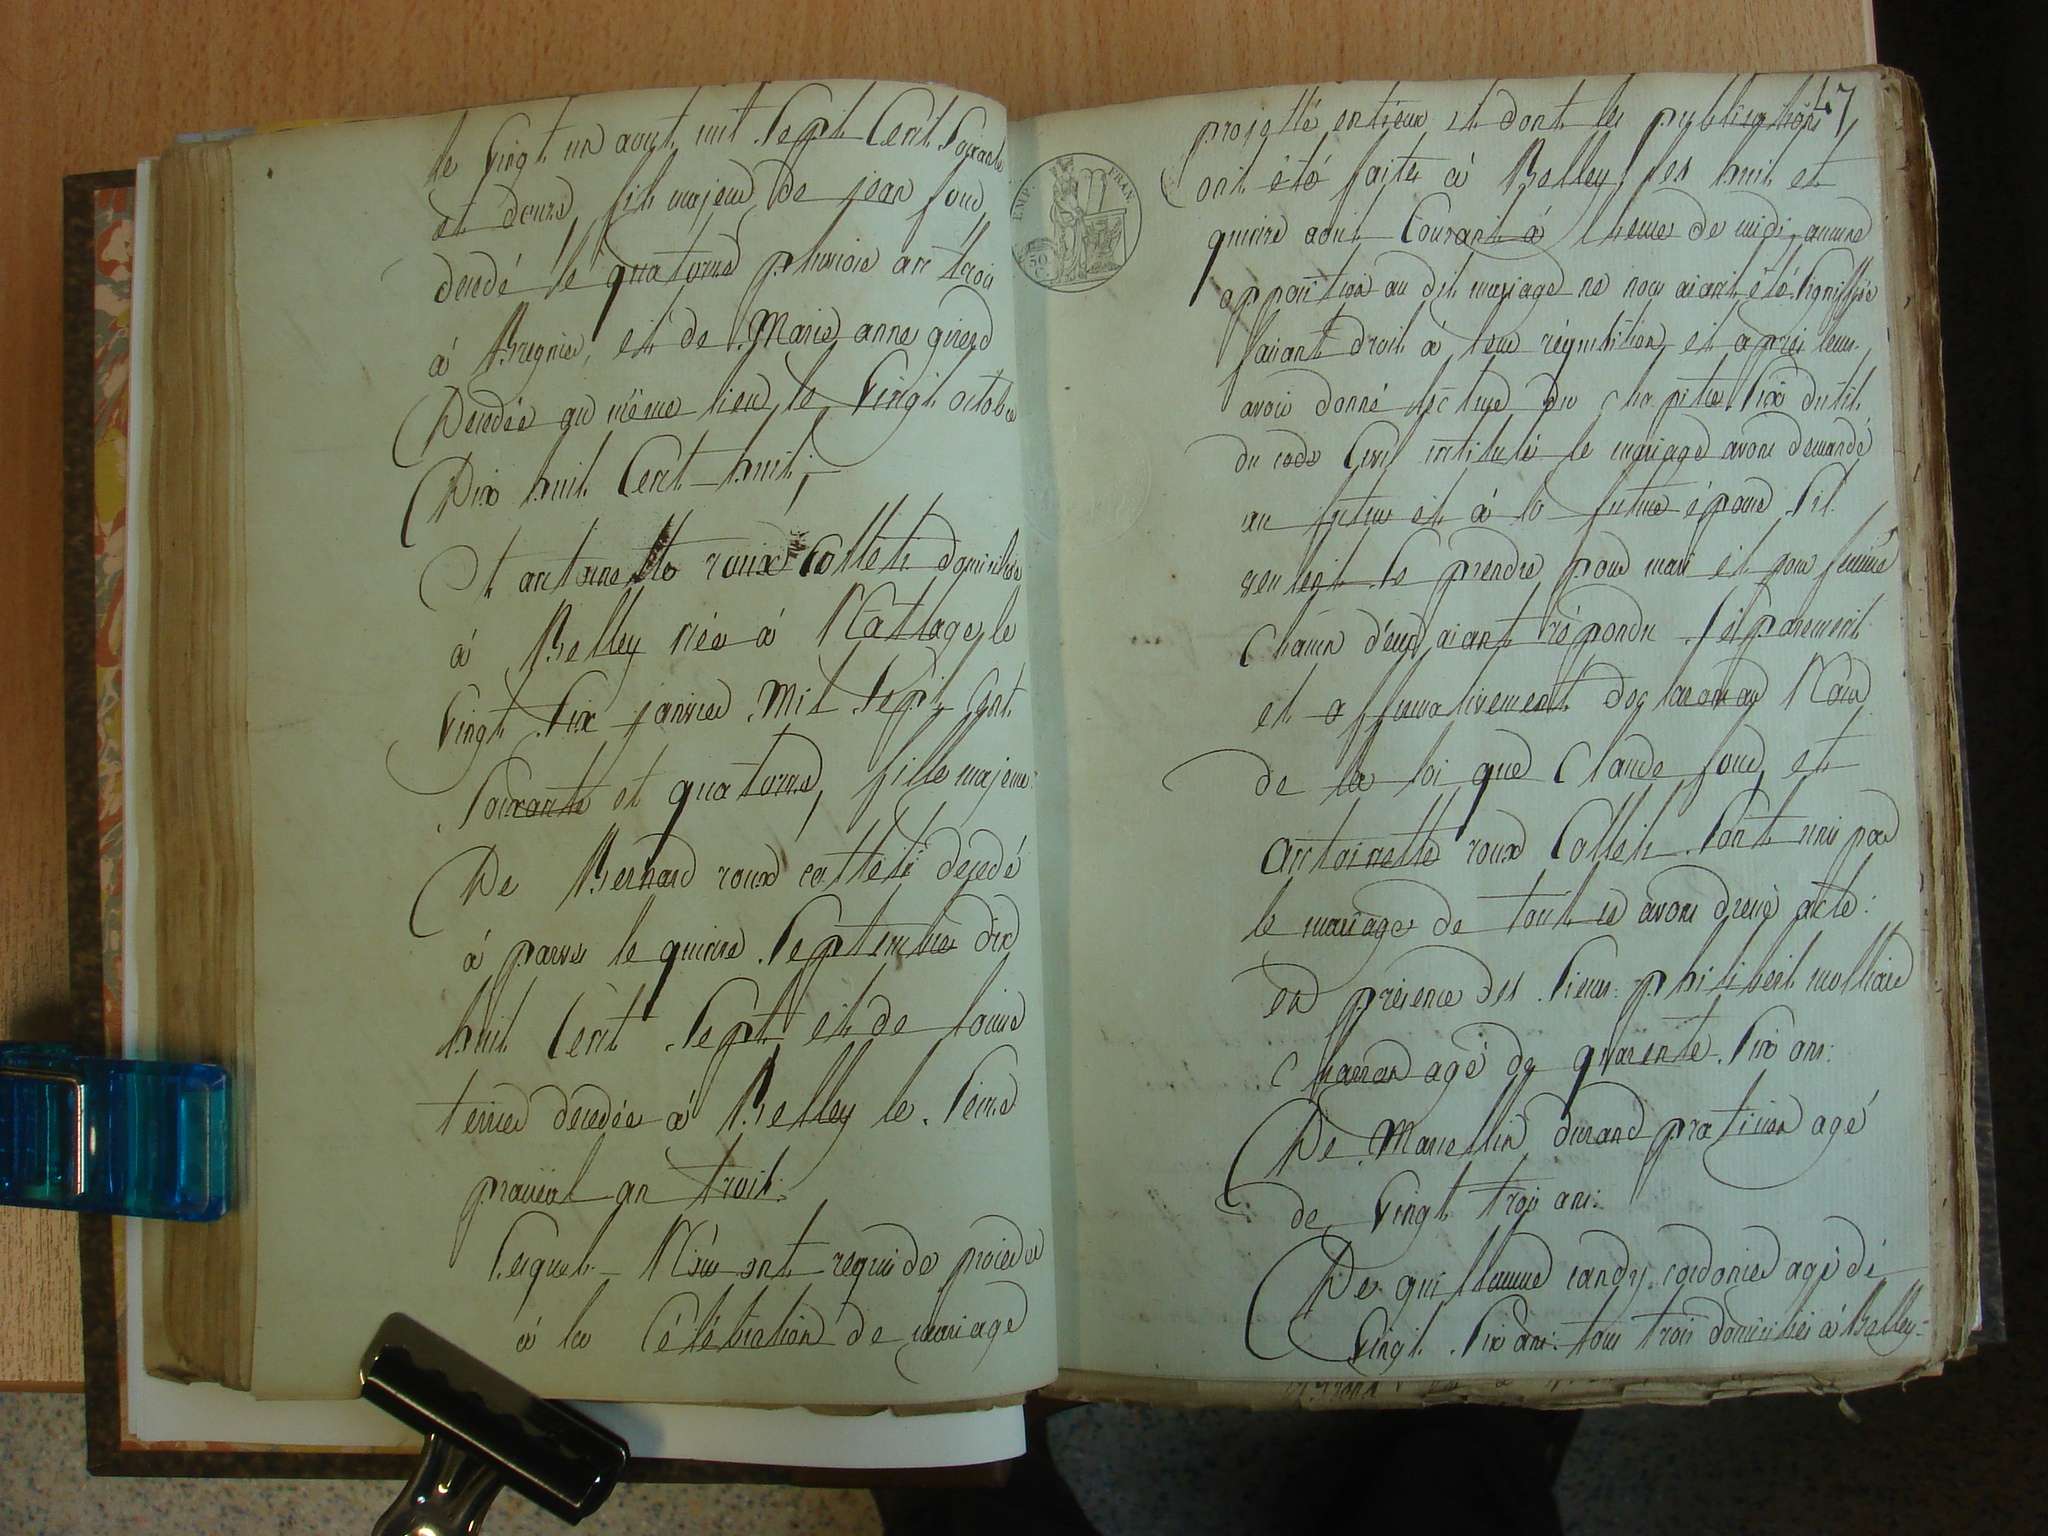 le vingt un aout mil sept cent soixante
et douze fils majeur de jean
décédé le quatorze pluviose an trois
à Bregnier, et de Marie anne girerd
Décédée au même lieu le vingt octobre
Dix huit cent huit;
Et antoinette roux Colleti domiciliée
à Belley née à Nattage, le
vingt six janvier Mil sept cent
soixante et quatorze, fille majeure
De Bernard roux colleti décédé
à parves le quinze septembre dix
huit cent sept et de louise
décédée à Belley le seize
prairial an trois.
Lesquels Nous ont requis de procéder
à la célébration de mariage
47
projetté entreux et dont les publications
ont été faites à Belley les huit et
quinze aout courant à lheure de midi, aucune
opposition au dit mariage ne nous aiant été signiffiée
faisant droit à leur réquisition, et après leur
avoir donné lecture du chapitre six du tit.
du code civil intitulé le mariage avons demandé
au futur et à la future épouse s'il
veulent se prendre pour mari et pour femme
chacun d'eux aiant répondu séparement
et affirmativement declarons au Nom
de la loi que Claude et
antoinette roux Colleti sont unis par
le mariage de tout ce avons dressé acte:
en présence des sieurs philibert
agé de quarente six ans:
De Marcellin durand praticien agé
de vingt trois ans:
De guillaume candy cordonier agé de
vingt six ans: tous trois domiciliés à Belley=
EMP. FRAN.
50 C.